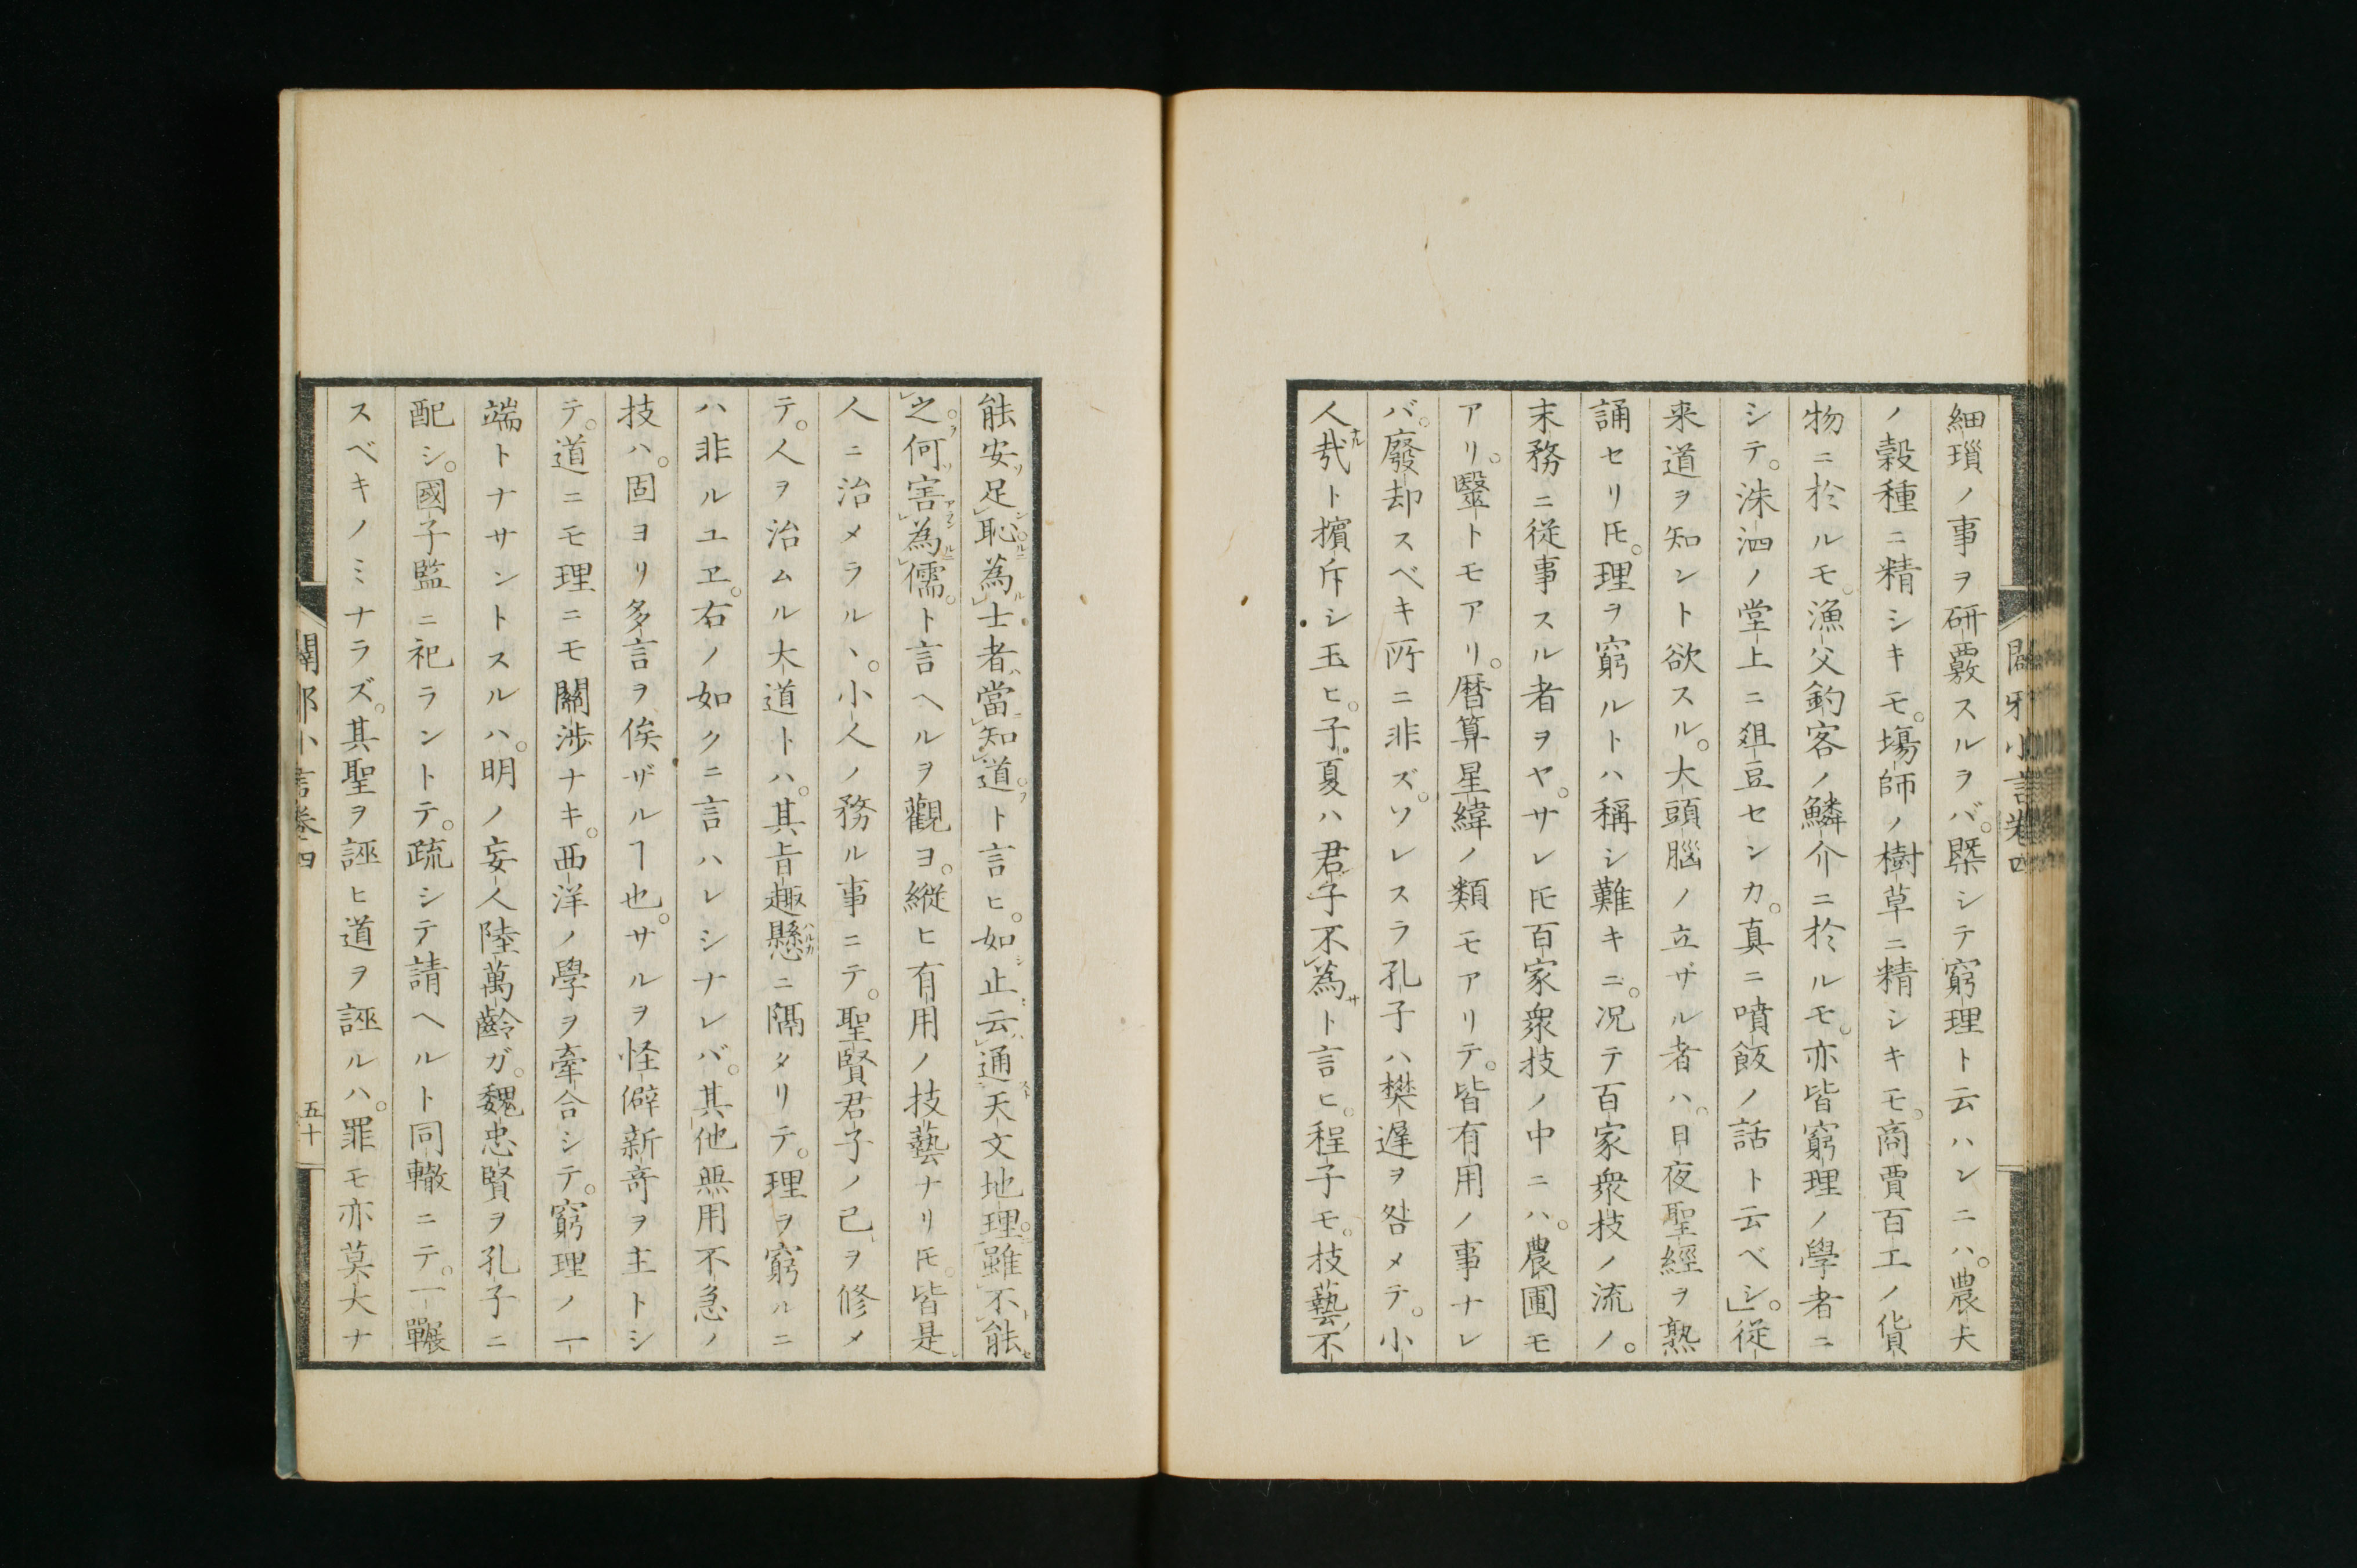 細瑣ノ事ヲ研覈スルヲバ。槩シテ窮理ト云ハンニハ。農夫
ノ穀種ニ精シキモ。場師ノ樹草ニ精シキモ。商賈百工ノ貨
物ニ於ルモ。漁父釣客ノ鱗介ニ於ルモ。亦皆窮理ノ學者ニ
シテ。洙泗ノ堂上ニ俎豆センカ。真ニ噴飯ノ話ト云ベシ。」従
来道ヲ知ント欲スル。大頭腦ノ立ザル者ハ。日夜聖經ヲ熟
誦セリ𪜈。理ヲ窮ルトハ稱シ難キニ。况テ百家衆技ノ流ノ。
末務ニ従事スル者ヲヤ。サレ𪜈百家衆技ノ中ニハ。農圃モ
アリ。毉トモアリ。暦算星緯ノ類モアリテ。皆有用ノ事ナレ
バ。廢却スベキ所ニ非ズ。ソレスラ孔子ハ樊遅ヲ咎メテ。小
人哉ト擯斥シ玉ヒ。子夏ハ君子不為ト言ヒ。程子モ。技藝不
能安足恥為士者當知道ト言ヒ。如止云通天文地理雖不能
之何害為儒。ト言ヘルヲ觀ヨ。縦ヒ有用ノ技藝ナリ𪜈。皆是
人ニ治メラルヽ。小人ノ務ル事ニテ。聖賢君子ノ己ヲ修メ
テ。人ヲ治ムル大道トハ。其旨趣懸ニ隔タリテ。理ヲ窮ルニ
ハ非ルユヱ。右ノ如クニ言ハレシナレバ。其他無用不急ノ
技ハ。固ヨリ多言ヲ俟ザルヿ也。サルヲ怪僻新竒ヲ主トシ
テ。道ニモ理ニモ關渉ナキ。西洋ノ學ヲ牽合シテ。窮理ノ一
端トナサントスルハ。明ノ妄人陸萬齡ガ。魏忠賢ヲ孔子ニ
配シ。國子監ニ祀ラントテ。疏シテ請ヘルト同轍ニテ。一囅
スベキノミナラズ。其聖ヲ誣ヒ道ヲ誣ルハ。罪モ亦莫大ナ
闢邪小言巻四
五十